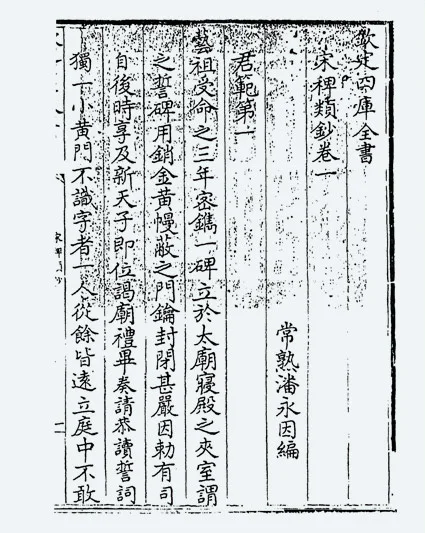 欽定四庫全書
宋稗類鈔卷一
常熟潘永因編
君範第一
藝祖受命之三年密鐫一碑立於太廟寢殿之夾室謂
之誓碑用銷金黄幔蔽之門鑰封閉甚嚴因勅有司
自後時享及新天子即位謁廟禮畢奏請恭讀誓詞
獨一小黄門不識字者一人從餘皆遠立庭中不敢